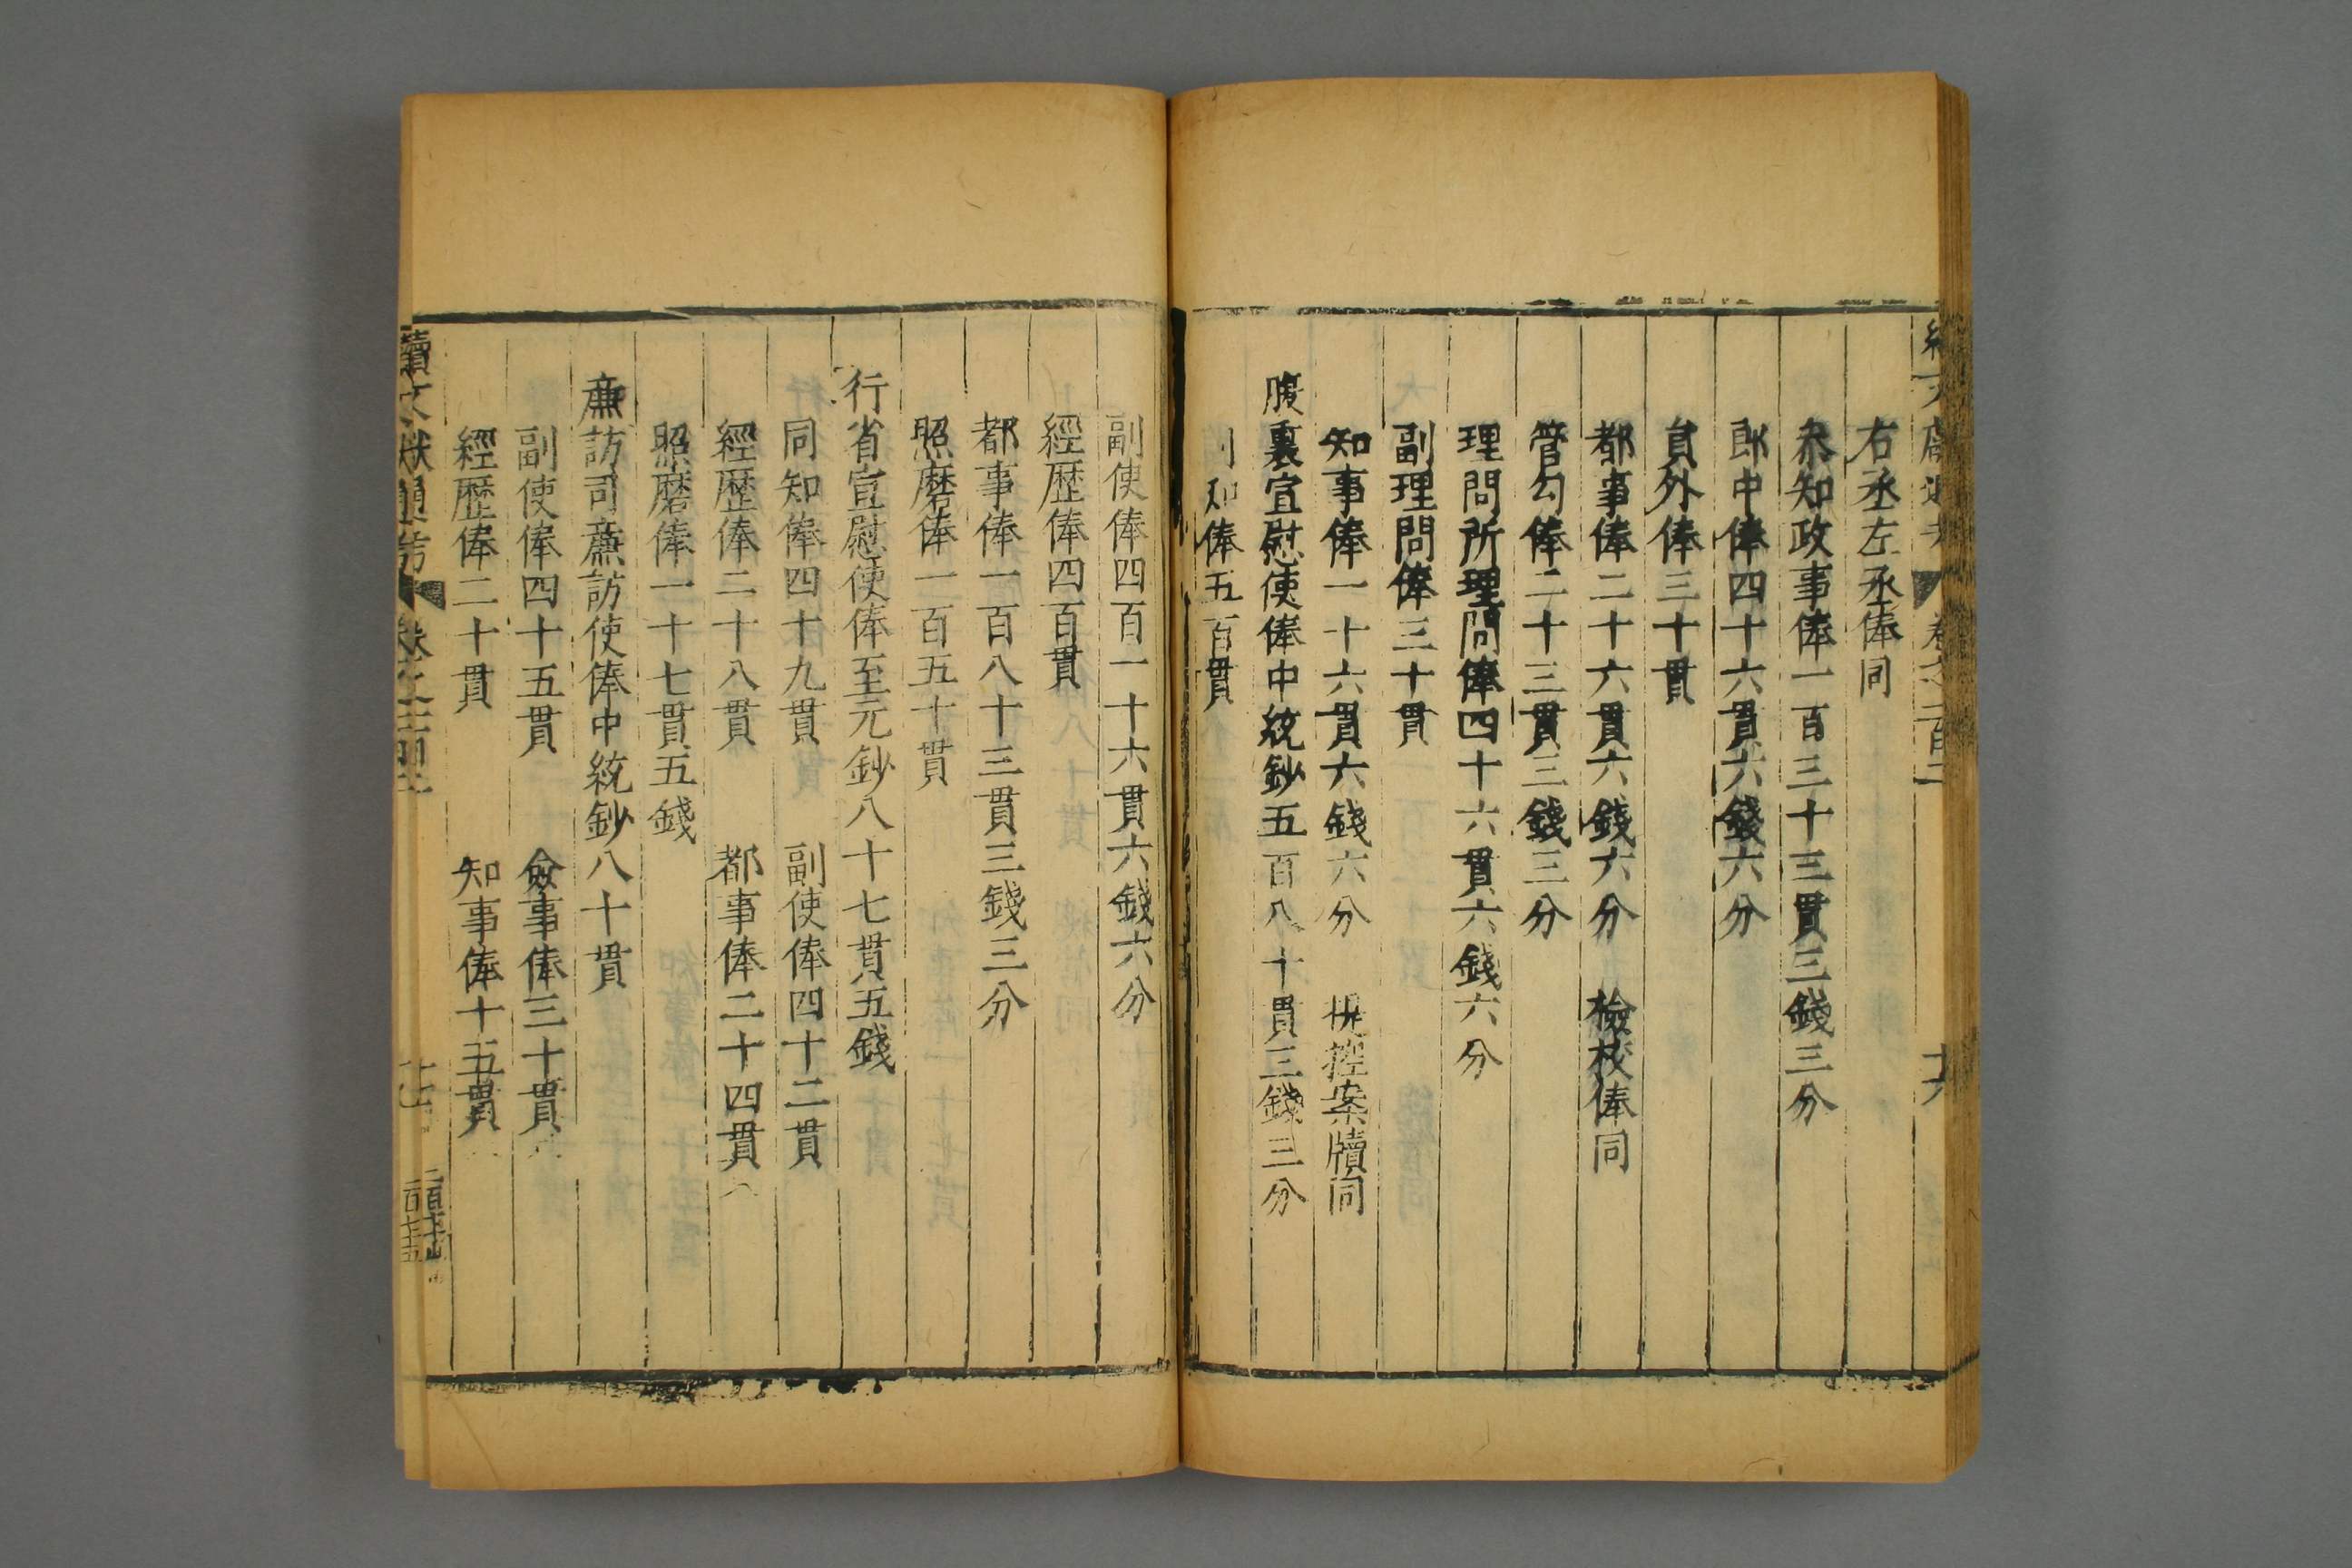 右丞左丞俸同
叅知政事俸一百三十三貫三錢三分
郎中俸四十六貫六錢六分
負外俸三十貫
都事俸二十六貫六錢六分 檢校俸同
管勾俸二十三貫三錢三分
理問所理問俸四十六貫六錢六分
副理問俸三十貫
知事俸一十六貫六錢六分 提控案牘同
腹裏宣慰使俸中統鈔五百八十貫三錢三分
知俸五百貫
副使俸四百一十六貫六錢六分
經歷俸四百貫
都事俸一百八十三貫三錢三分
照磨俸一百五十貫
行省宣慰使俸至元鈔八十七貫五錢
同知俸四十九貫 副使俸四十二貫
經歷俸二十八貫 都事俸二十四貫
照磨俸一十七貫五錢
廉訪司廉訪使俸中統鈔八十貫
副使俸四十五貫 僉事俸三十貫
經歷俸二十貫 知事俸十五貫